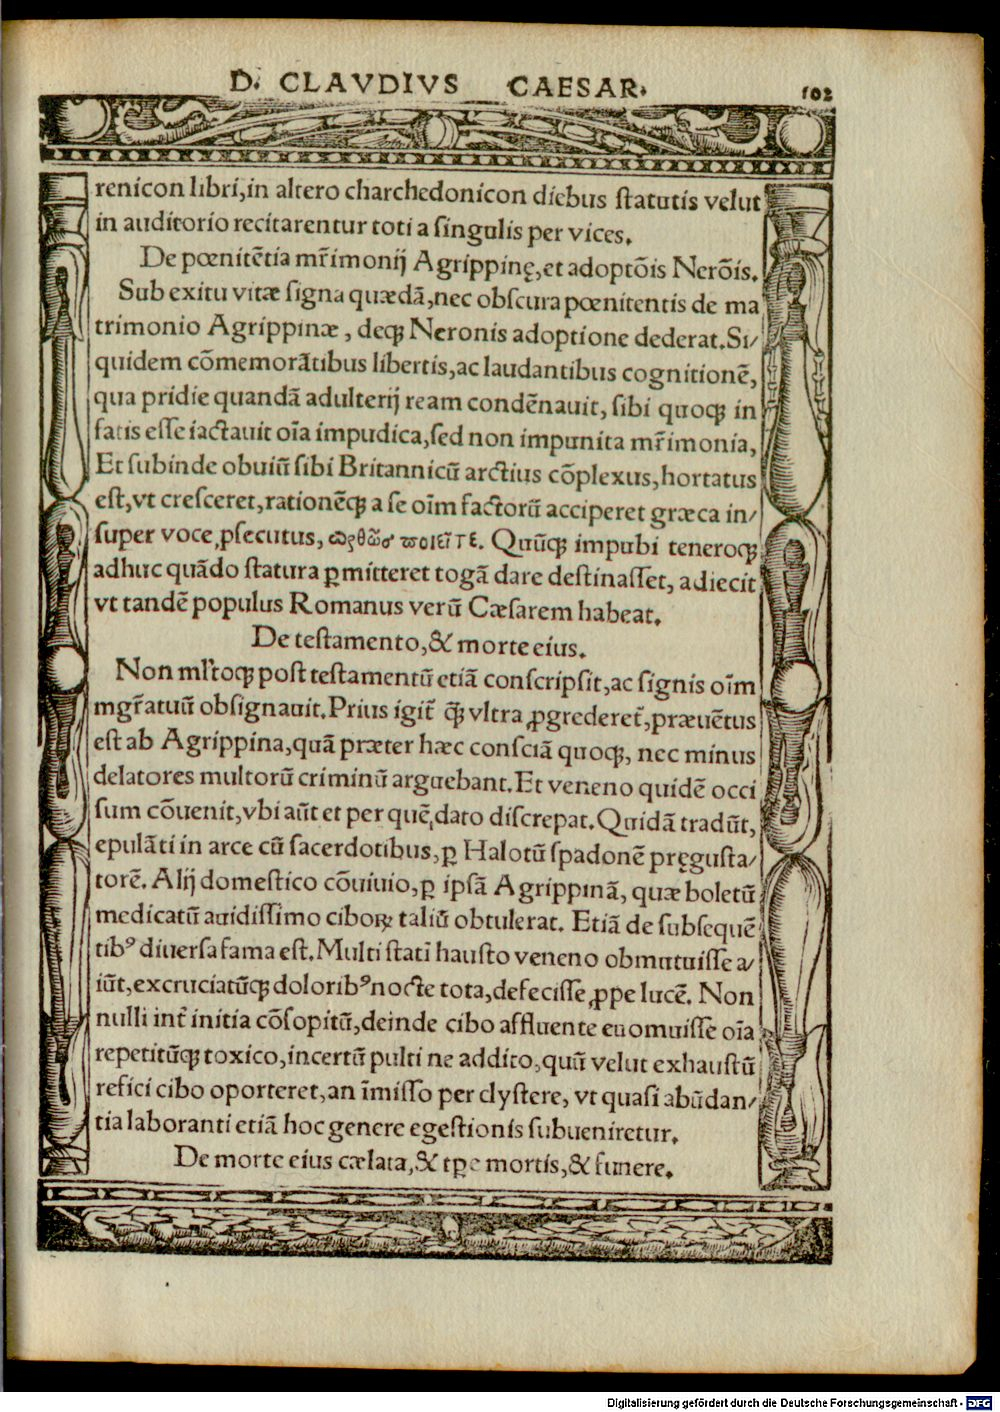 D. CLAVDIVS CAESAR. 102
renicon libri,in altero charchedonicon diebus ſtatutis velut
in auditorio recitarentur toti a ſingulis per vices.
De pœnitẽtia mr̃imonij Agrippinę,et adoptõis Nerõis.
Sub exitu vitæ ſigna quædã,nec obſcura pœnitentis de ma
trimonio Agrippinæ, deqꝫ Neronis adoptione dederat.Si/
quidem cõmemorãtibus libertis,ac laudantibus cognitionẽ,
qua pridie quandã adulterij ream condẽnauit, ſibi quoqꝫ in
fatis eſſe iactauit oĩa impudica,ſed non impunita mr̃imonia,
Et ſubinde obuiũ ſibi Britannicũ arctius cõplexus,hortatus
eſt,vt creſceret,rationẽqꝫ a ſe oĩm factorũ acciperet græca in/
ſuper voce ꝓſecutus, ὀρθῶσ ποιεῖτε. Quũqꝫ impubi teneroqꝫ
adhuc quãdo ſtatura ꝑmitteret togã dare deſtinaſſet, adiecit
vt tandẽ populus Romanus verũ Cæſarem habeat.
De teſtamento,& morte eius.
Non ml̃toqꝫ poſt teſtamentũ etiã conſcripſit,ac ſignis oĩm
mgr̃atuũ obſignauit.Prius igit̃ q̃ꝫ vltra ꝓgrederet̃,præuẽtus
eſt ab Agrippina,quã præter hæc conſciã quoqꝫ, nec minus
delatores multorũ criminũ arguebant.Et veneno quidẽ occi
ſum cõuenit,vbi aũt et per quẽ,dato diſcrepat.Quidã tradũt,
epulãti in arce cũ ſacerdotibus,ꝑ Halotũ ſpadonẽ pręguſta/
torẽ. Alij domeſtico cõuiuio,ꝑ ipſã Agrippinã, quæ boletũ
medicatũ auidiſſimo ciboꝝ taliũ obtulerat. Etiã de ſubſequẽ
tibꝰ diuerſa fama eſt.Multi ſtatĩ hauſto veneno obmutuiſſe a/
iũt,excruciatũqꝫ doloribꝰ nocte tota,defeciſſe ꝓpe lucẽ. Non
nulli int̃ initia cõſopitũ,deinde cibo affluente euomuiſſe oĩa
repetitũqꝫ toxico,incertũ pulti ne addito,quũ velut exhauſtũ
refici cibo oporteret,an ĩmiſſo per clyſtere, vt quaſi abũdan/
tia laboranti etiã hoc genere egeſtionis ſubueniretur.
De morte eius cælata,& tꝑe mortis,& funere.
Digitalisierung gefördert durch die Deutsche Forschungsgemeinschaft - DFG